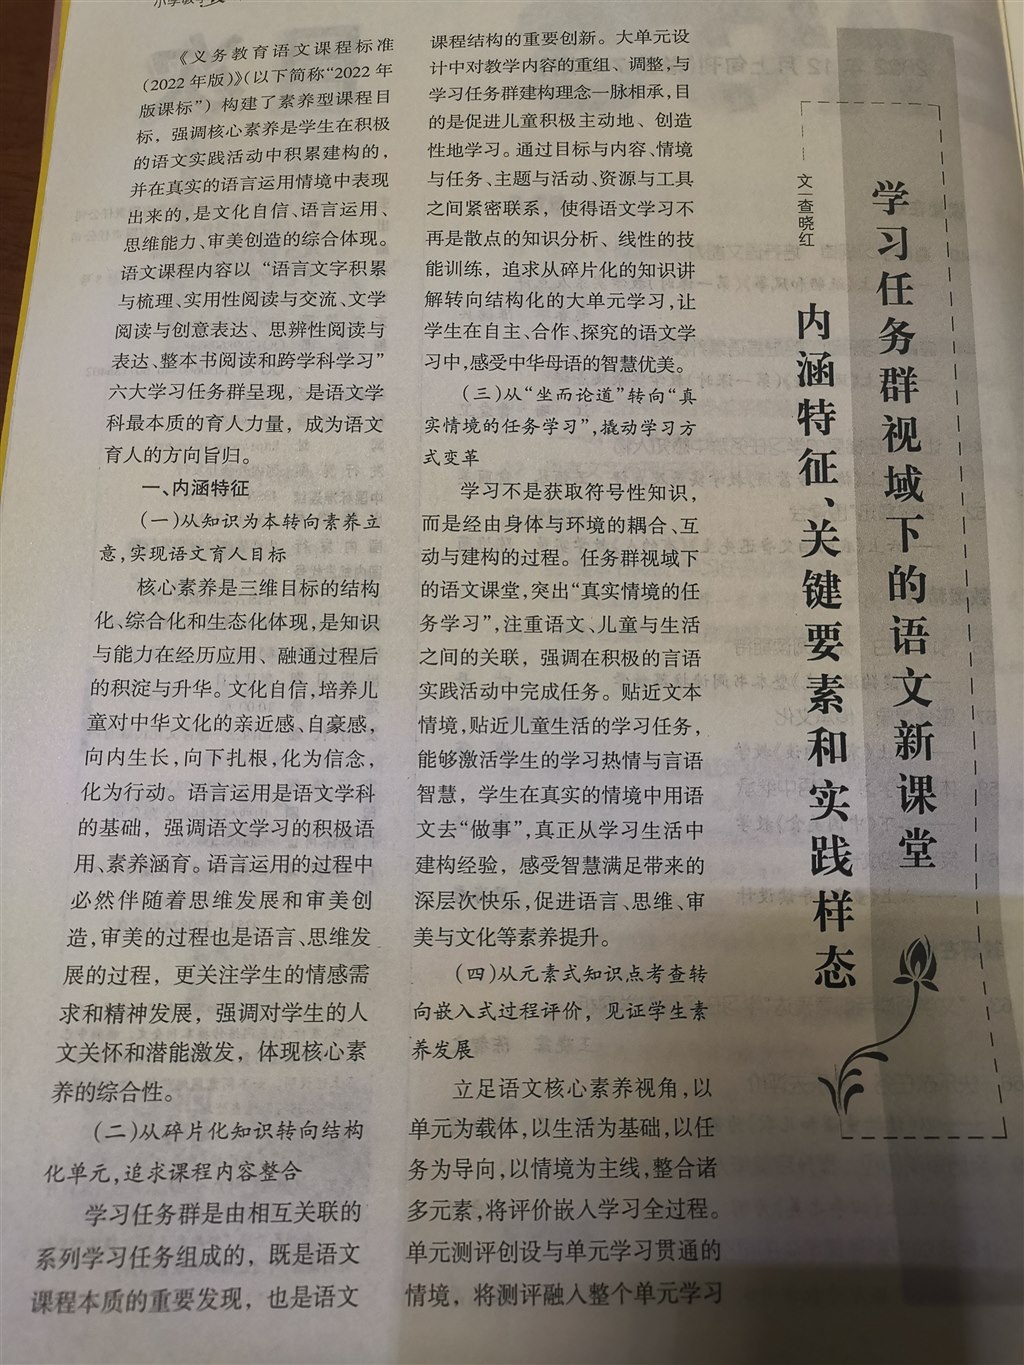 学习任务群视域下的语文新课堂
内涵特征、关键要素和实践样态
文 查晓红
《义务教育语文课程标准
(2022年版)》(以下简称“2022年
版课标”）构建了素养型课程目
标，强调核心素养是学生在积极
的语文实践活动中积累建构的，
并在真实的语言运用情境中表现
出来的,是文化自信、语言运用、
思维能力、审美创造的综合体现。
语文课程内容以“语言文字积累
与梳理、实用性阅读与交流、文学
阅读与创意表达、思辨性阅读与
表达、整本书阅读和跨学科学习”
六大学习任务群呈现，是语文学
科最本质的育人力量，成为语文
育人的方向旨归。
一、内涵特征
（一)从知识为本转向素养立
意,实现语文育人目标
核心素养是三维目标的结构
化、综合化和生态化体现,是知识
与能力在经历应用、融通过程后
的积淀与升华。文化自信,培养儿
童对中华文化的亲近感、自豪感，
向内生长,向下扎根,化为信念，
化为行动。语言运用是语文学科
的基础，强调语文学习的积极语
用、素养涵育。语言运用的过程中
必然伴随着思维发展和审美创
造,审美的过程也是语言、思维发
展的过程，更关注学生的情感需
求和精神发展，强调对学生的人
文关怀和潜能激发，体现核心素
养的综合性。
（二)从碎片化知识转向结构
化单元,追求课程内容整合
学习任务群是由相互关联的
系列学习任务组成的，既是语文
课程本质的重要发现，也是语文
课程结构的重要创新。大单元设
计中对教学内容的重组、调整,与
学习任务群建构理念一脉相承,目
的是促进儿童积极主动地、创造
性地学习。通过目标与内容、情境
与任务、主题与活动、资源与工具
之间紧密联系，使得语文学习不
再是散点的知识分析、线性的技
能训练，追求从碎片化的知识讲
解转向结构化的大单元学习,让
学生在自主、合作、探究的语文学
习中,感受中华母语的智慧优美。
（三)从“坐而论道”转向“真
实情境的任务学习”,撬动学习方
式变革
学习不是获取符号性知识，
而是经由身体与环境的耦合、互
动与建构的过程。任务群视域下
的语文课堂,突出“真实情境的任
务学习”,注重语文、儿童与生活
之间的关联，强调在积极的言语
实践活动中完成任务。贴近文本
情境,贴近儿童生活的学习任务，
能够激活学生的学习热情与言语
智慧，学生在真实的情境中用语
文去“做事”,真正从学习生活中
建构经验，感受智慧满足带来的
深层次快乐,促进语言、思维、审
美与文化等素养提升。
（四)从元素式知识点考查转
向嵌入式过程评价，见证学生素
养发展
立足语文核心素养视角,以
单元为载体,以生活为基础,以任
务为导向,以情境为主线,整合诸
多元素,将评价嵌入学习全过程。
单元测评创设与单元学习贯通的
情境，将测评融入整个单元学习